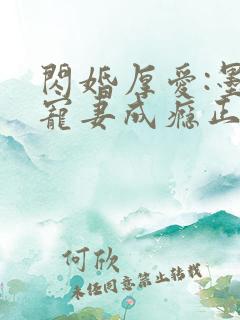 閃婚厚愛:墨
寵妻成瘾正
何欣
未经同意禁止转载